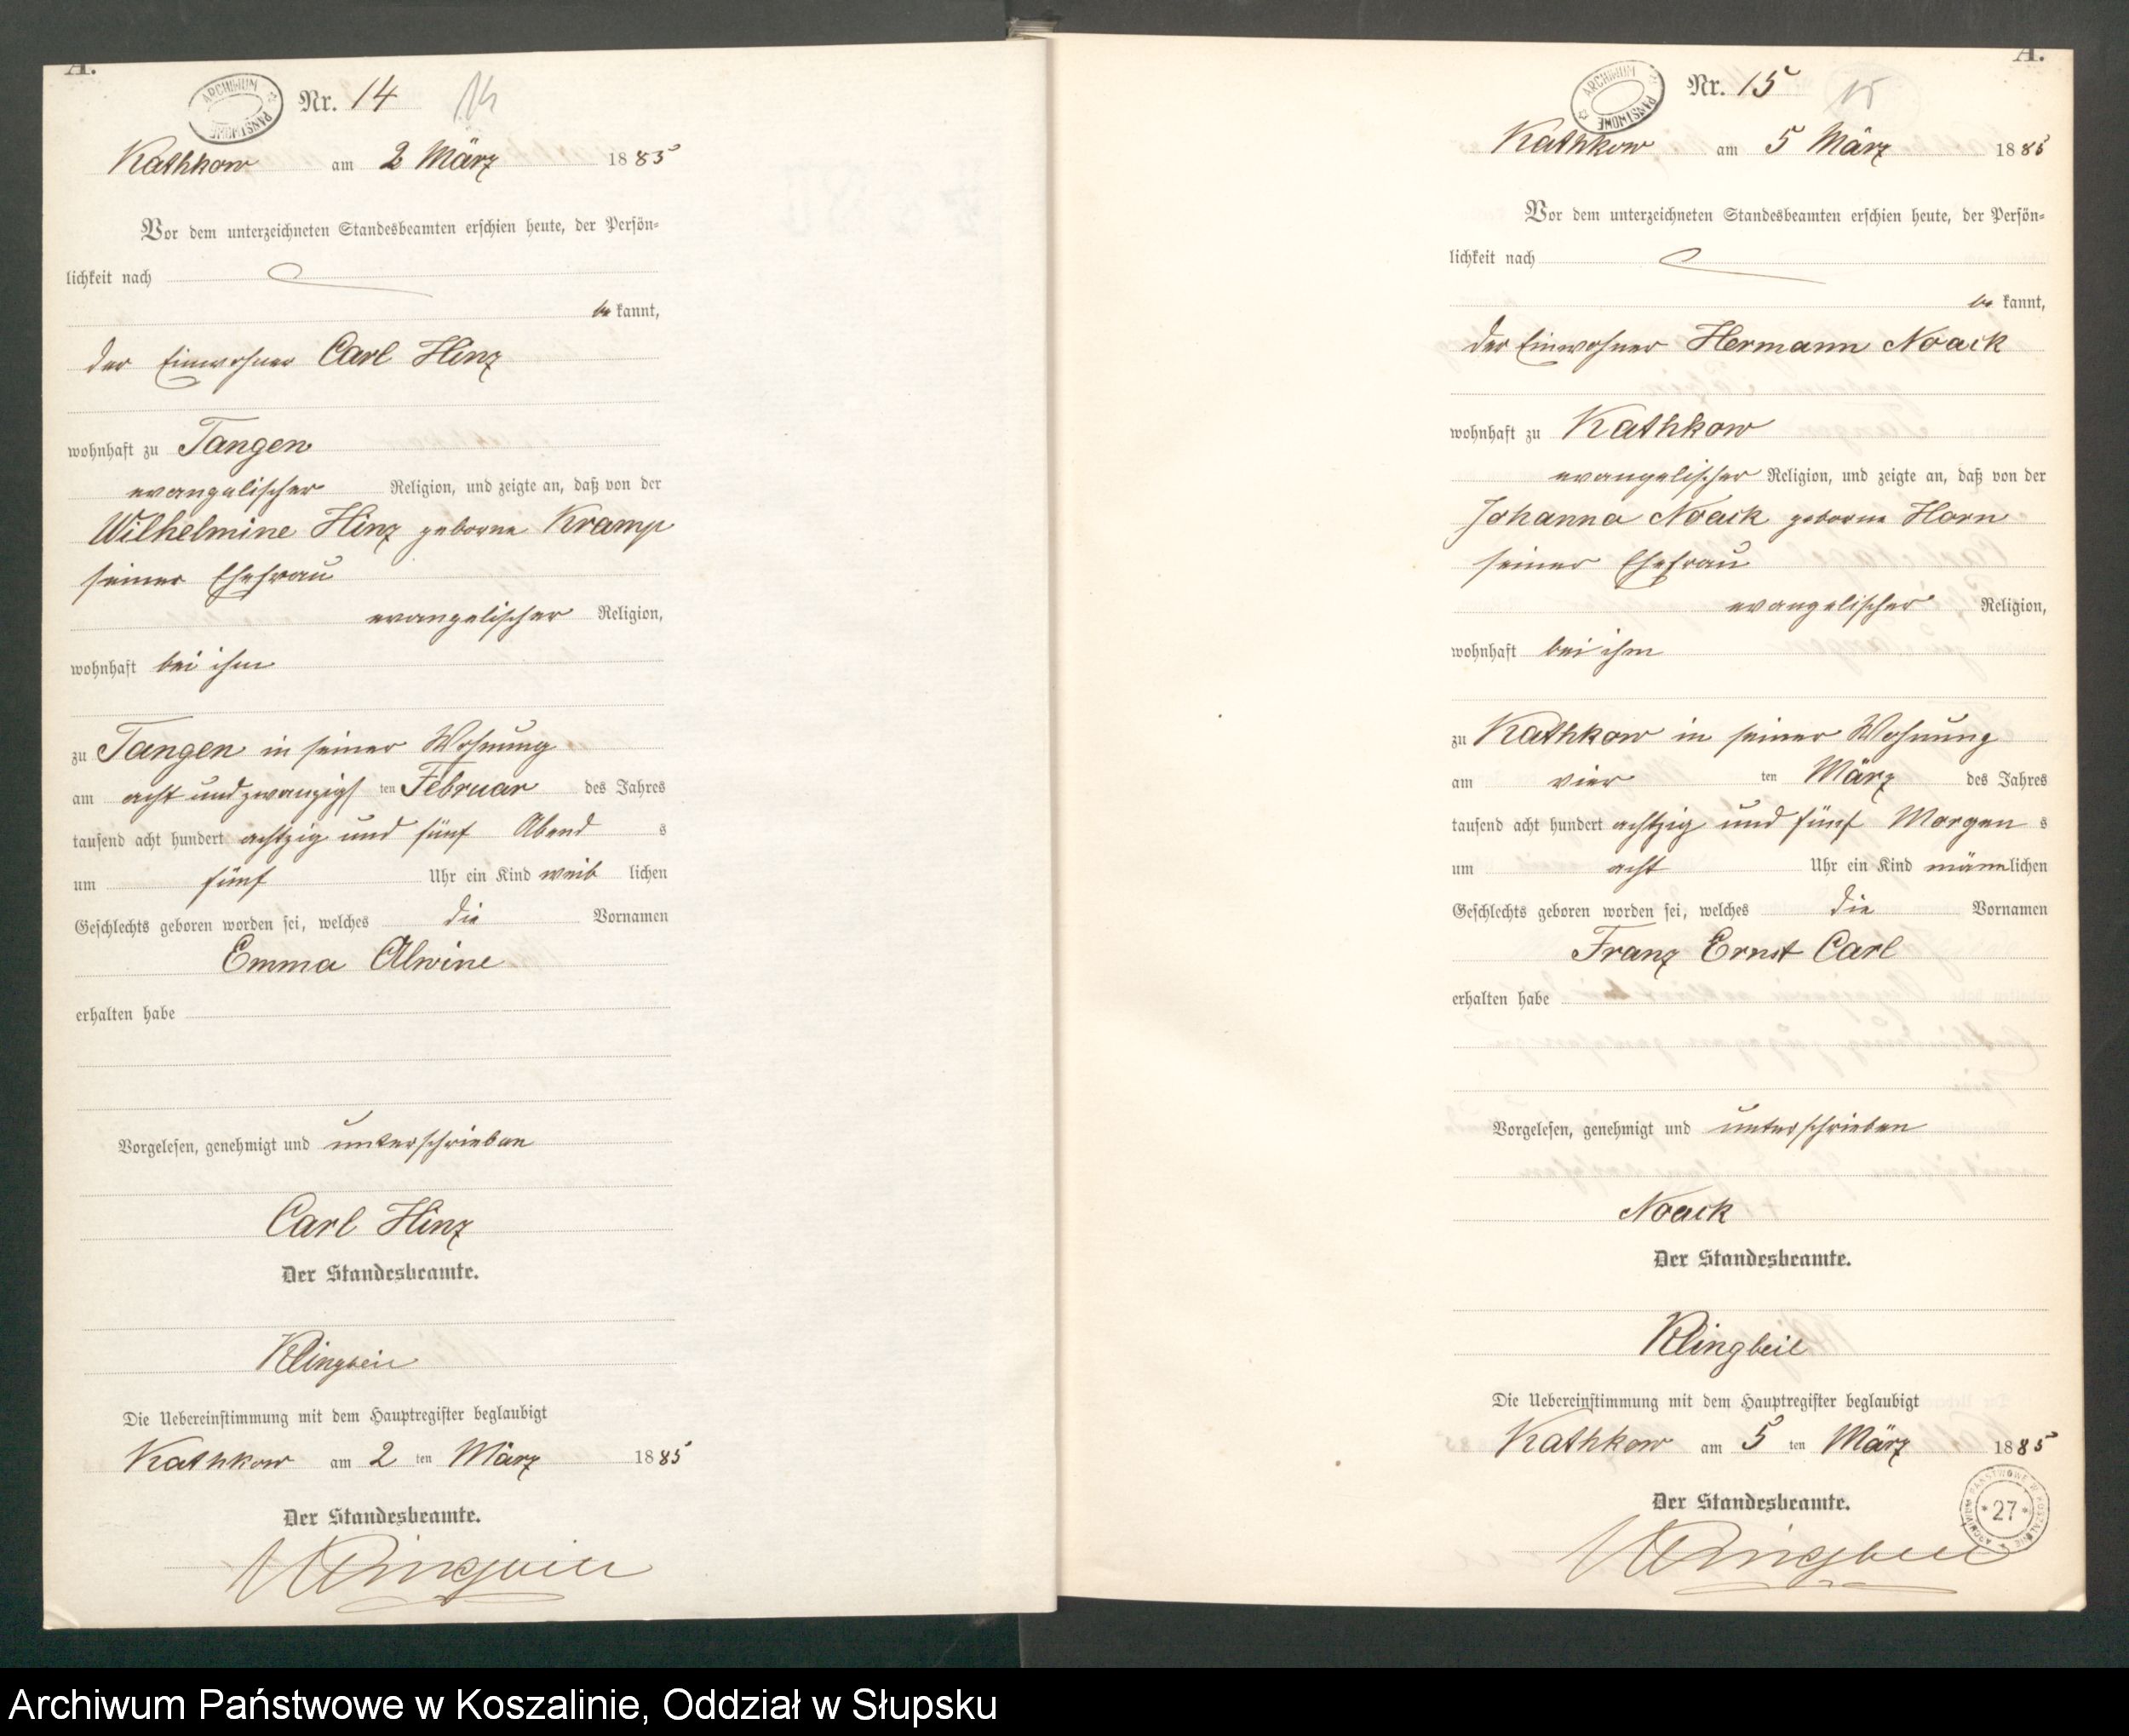 A.
ARCHIWUM PAŃSTWOWE
Nr. 14
14
Kathkow am 2 März 1885
Vor dem unterzeichneten Standesbeamten erschien heute, der Persön-
lichkeit nach
be kannt,
der Einwohner Carl Hinz
wohnhaft zu Tangen
evangelischer Religion, und zeigte an, daß von der
Wilhelmine Hinz geborne Kramp
seiner Ehefrau
evangelischer Religion,
wohnhaft bei ihm
zu Tangen in seiner Wohnung
am acht und zwanzigsten Februar des Jahres
tausend acht hundert achtzig und fünf Abend s
um fünf Uhr ein Kind weib lichen
Geschlechts geboren worden sei, welches die Vornamen
Emma Alwine
erhalten habe
Vorgelesen, genehmigt und unterschrieben
Carl Hinz
Der Standesbeamte.
Klingbeil
Die Uebereinstimmung mit dem Hauptregister beglaubigt
Kathkow am 2 ten März 1885
Der Standesbeamte.
Klingbeil
A.
ARCHIWUM PAŃSTWOWE
Nr. 15
15
Kathkow am 5 März 1885
Vor dem unterzeichneten Standesbeamten erschien heute, der Persön-
lichkeit nach
be kannt,
der Einwohner Hermann Noack
wohnhaft zu Kathkow
evangelischer Religion, und zeigte an, daß von der
Johanna Noack geborne Horn
seiner Ehefrau
evangelischer Religion,
wohnhaft bei ihm
zu Kathkow in seiner Wohnung
am vier ten März des Jahres
tausend acht hundert achtzig und fünf Morgen s
um acht Uhr ein Kind männlichen
Geschlechts geboren worden sei, welches die Vornamen
Franz Ernst Carl
erhalten habe
Vorgelesen, genehmigt und unterschrieben
Noack
Der Standesbeamte.
Klingbeil
Die Uebereinstimmung mit dem Hauptregister beglaubigt
Kathkow am 5 ten März 1885
Der Standesbeamte.
Klingbeil
ARCHIWUM PAŃSTWOWE W KOSZALINIE
* 27 *
Archiwum Państwowe w Koszalinie, Oddział w Słupsku